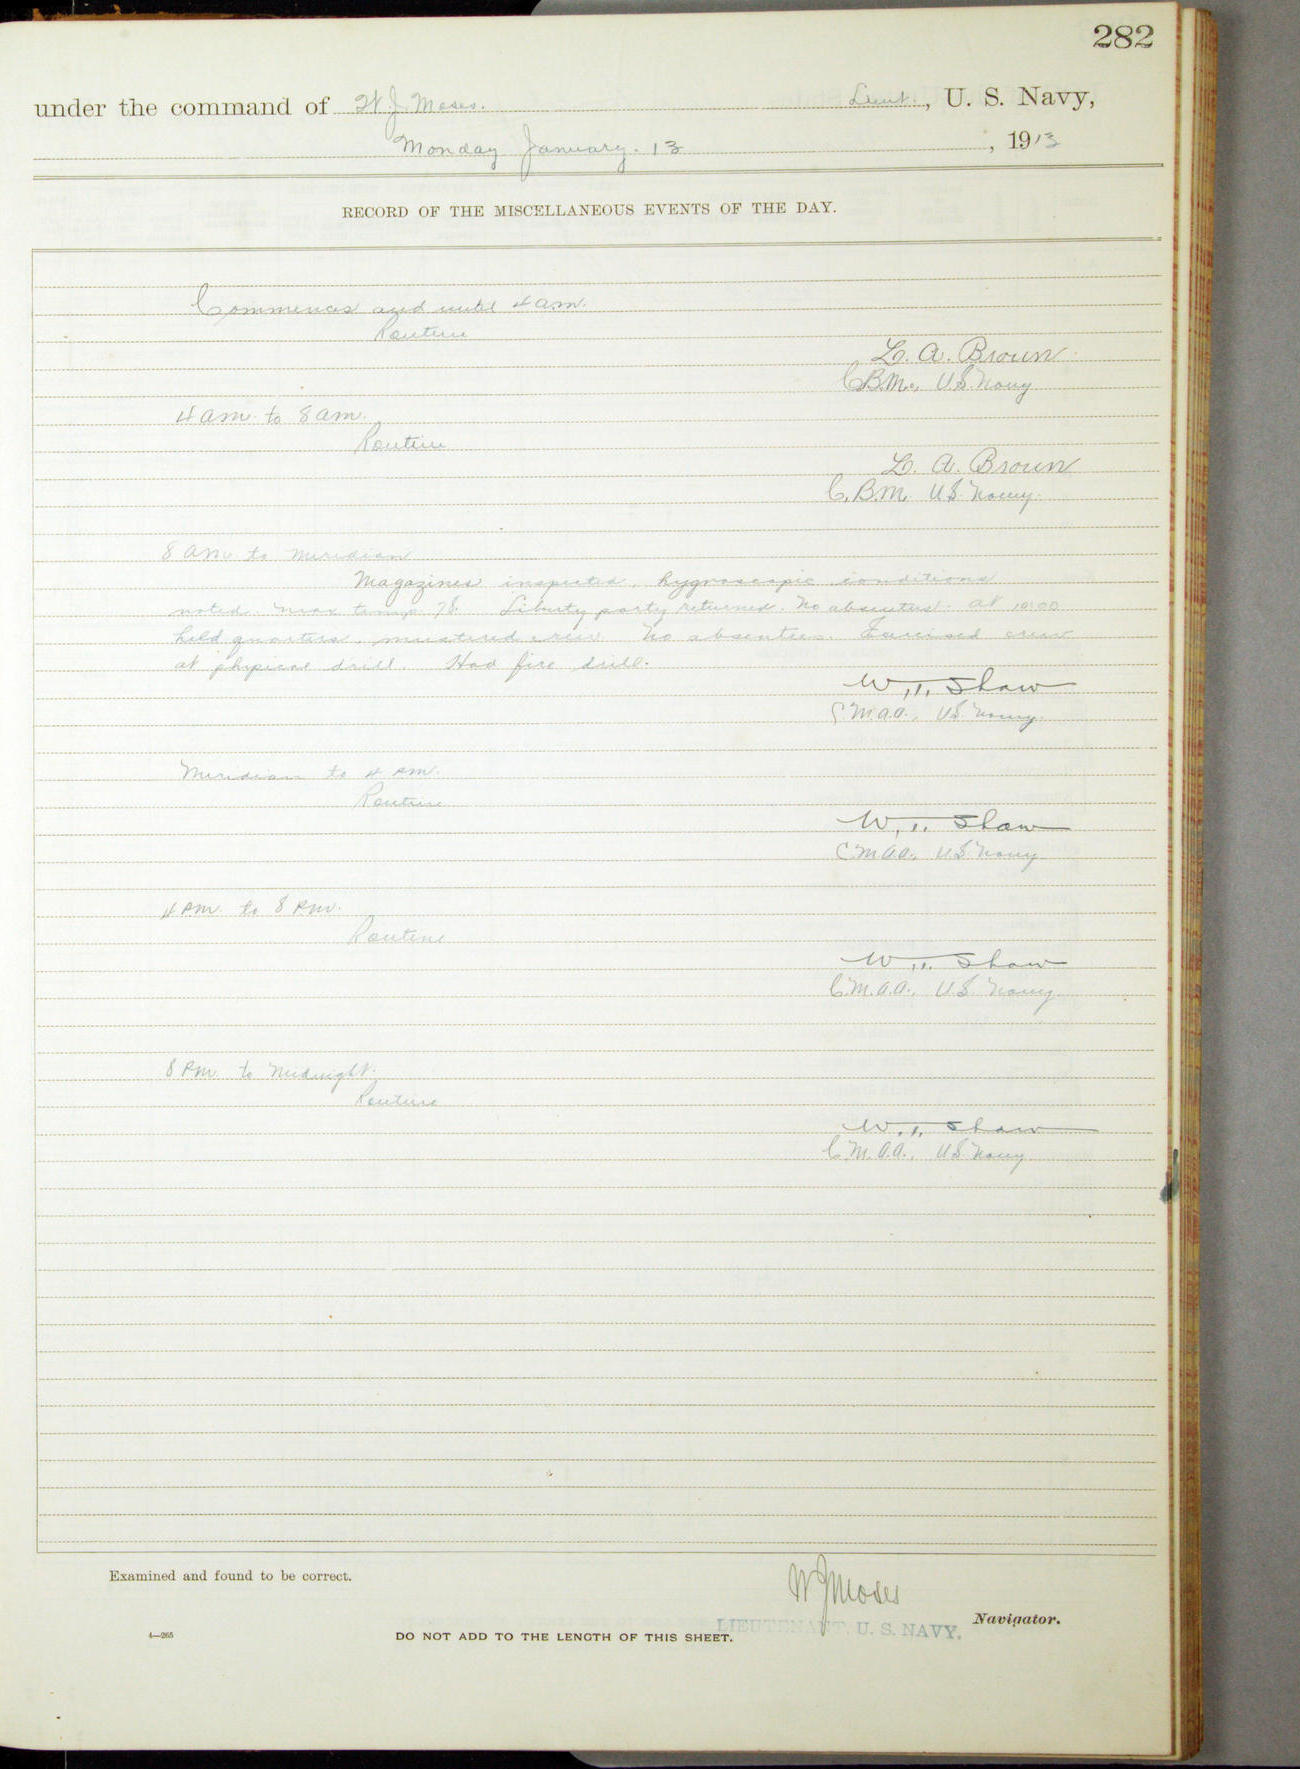 282
under the command of W. J. Moses. Lieut., U. S. Navy,
Monday January. 13, 1913
RECORD OF THE MISCELLANEOUS EVENTS OF THE DAY.
Commences and until 4 am.
Routine
L. A. Broun
C.B.M., U.S. Navy
4 am. to 8 am.
Routine
L. A. Broun
C.B.M. U.S. Navy.
8 am to meridian
Magazines inspected, hygroscopic conditions
noted. max temp. 78. Liberty party returned. No absentees. At 10:00
held quarters, mustered crew. No absentees. Exercised crew
at physical drill. Had fire drill.
Shaw
C.M.A.A., U.S. Navy.
Meridian to 4 PM.
Routine
Shaw
C.M.A.A., U.S. Navy
4 PM. to 8 PM.
Routine
Shaw
C.M.A.A., U.S. Navy.
8 PM. to Midnight.
Routine
Shaw
C.M.A.A., U.S. Navy
Examined and found to be correct.
W J Moses
LIEUTENANT, U. S. NAVY.
Navigator.
4—265
DO NOT ADD TO THE LENGTH OF THIS SHEET.